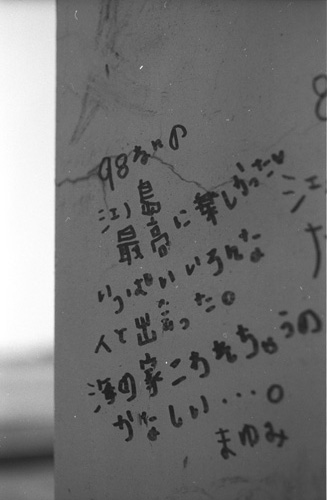 98なつの
江ノ島
最高に楽しかった♥
いっぱいいろんな
人と出会った。
海の家こわれちゃうの
かなしい・・・。
まゆみ
8
江